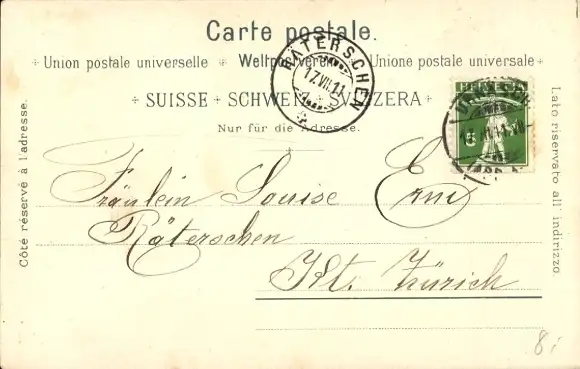 Carte postale.
Union postale universelle + Weltpostverein + Unione postale universale +
+ SUISSE + SCHWEIZ + SVIZZERA +
Nur für die Adresse.
Côté réservé à l'adresse.
Lato riservato all indirizzo.
RÄTERSCHEN
17.VII.11
Fräulein Louise Erni
Räterschen
Kt. Zürich